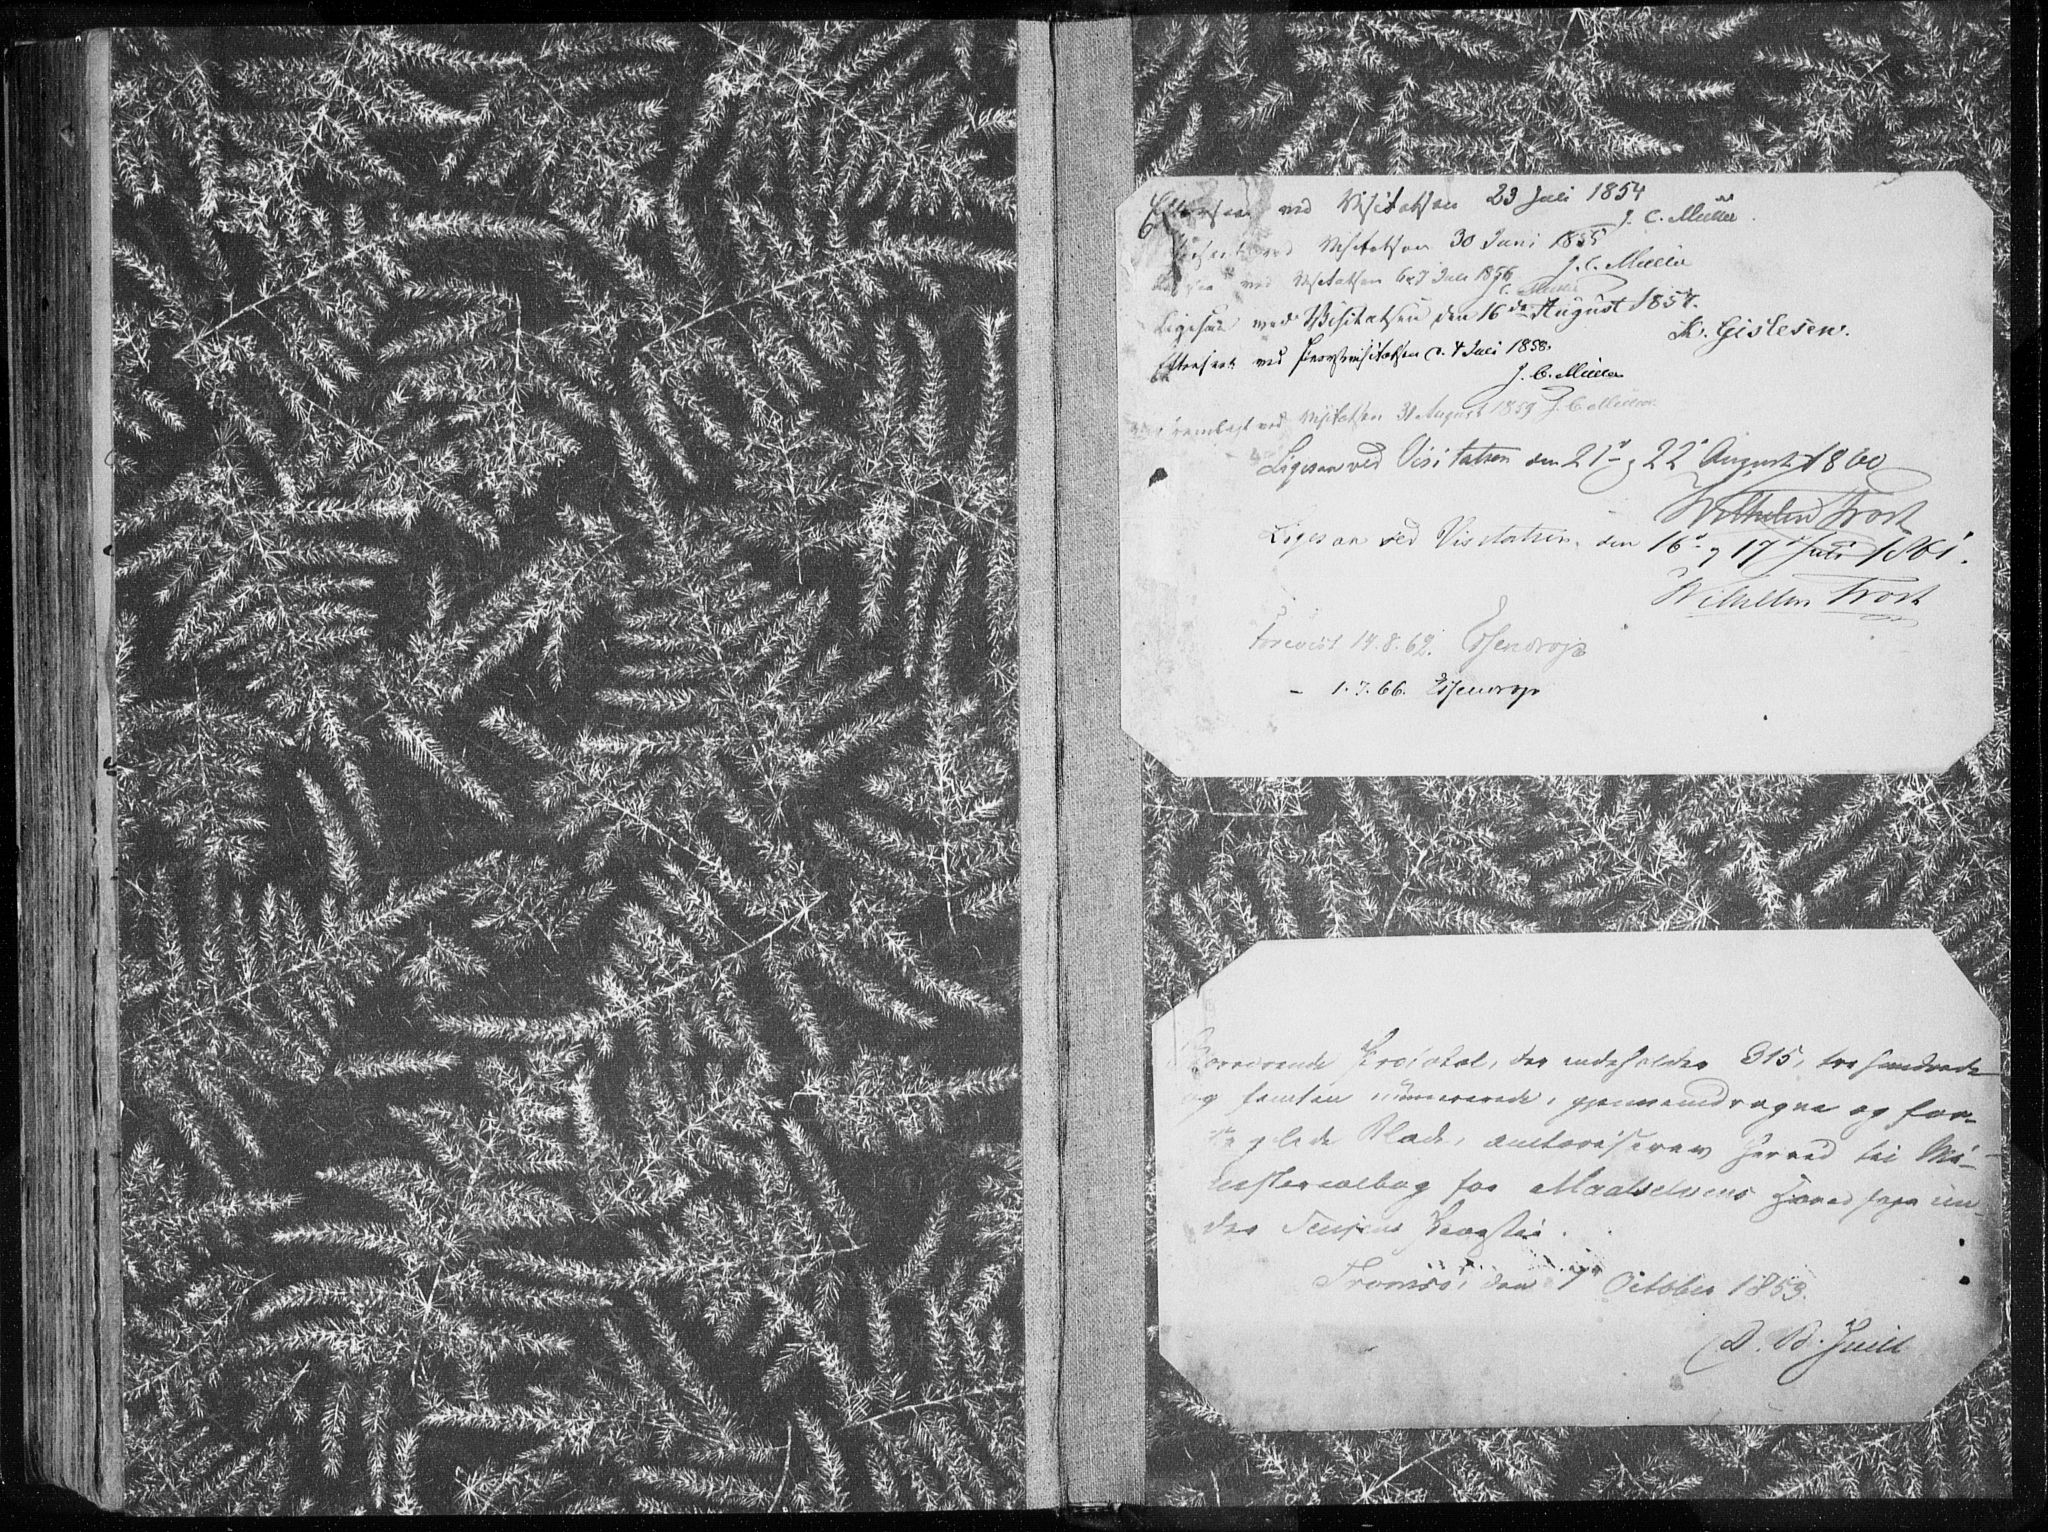 Efterseet ved Visitatsen 23 Juli 1854
J. C. Müller.
Efterseet ved Visitatsen 30 Juni 1855
J. C. Müller
Ligesaa ved Visitatsen 6 & 7 Juli 1856
J. C. Müller
Ligesaa ved Visitatsen den 16de August 1857.
K. Gislesen.
Efterseet ved Provstevisitatsen d. 4 Juli 1858.
J. C. Müller
fremlagt ved Visitatsen 31 August 1859 J. C. Müller
Ligesaa ved Visitatsen den 21d og 22d August 1860
Wilhelm Frost
Ligesaa ved Visitatsen den 16d og 17d Juli 1861.
Wilhelm Frost
Forevist 14.8.62. Essendrop
– 1.7.66. Essendrop
Nærværende Protokol, der indeholder 315, tre hundrede
og femten nummererede, gjennemdragne og for-
seglede Blade, autoriseres herved til Mi-
nisterialbog for Maalselvens Hovedsogn un-
der Senjens Provsti.
Tromsø, den 7 October 1853.
D. B. Juell